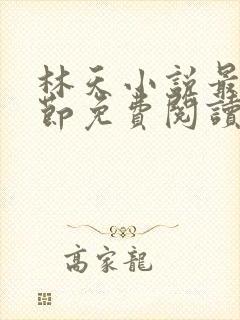 林天小説最
節免費閱讀
高家龍